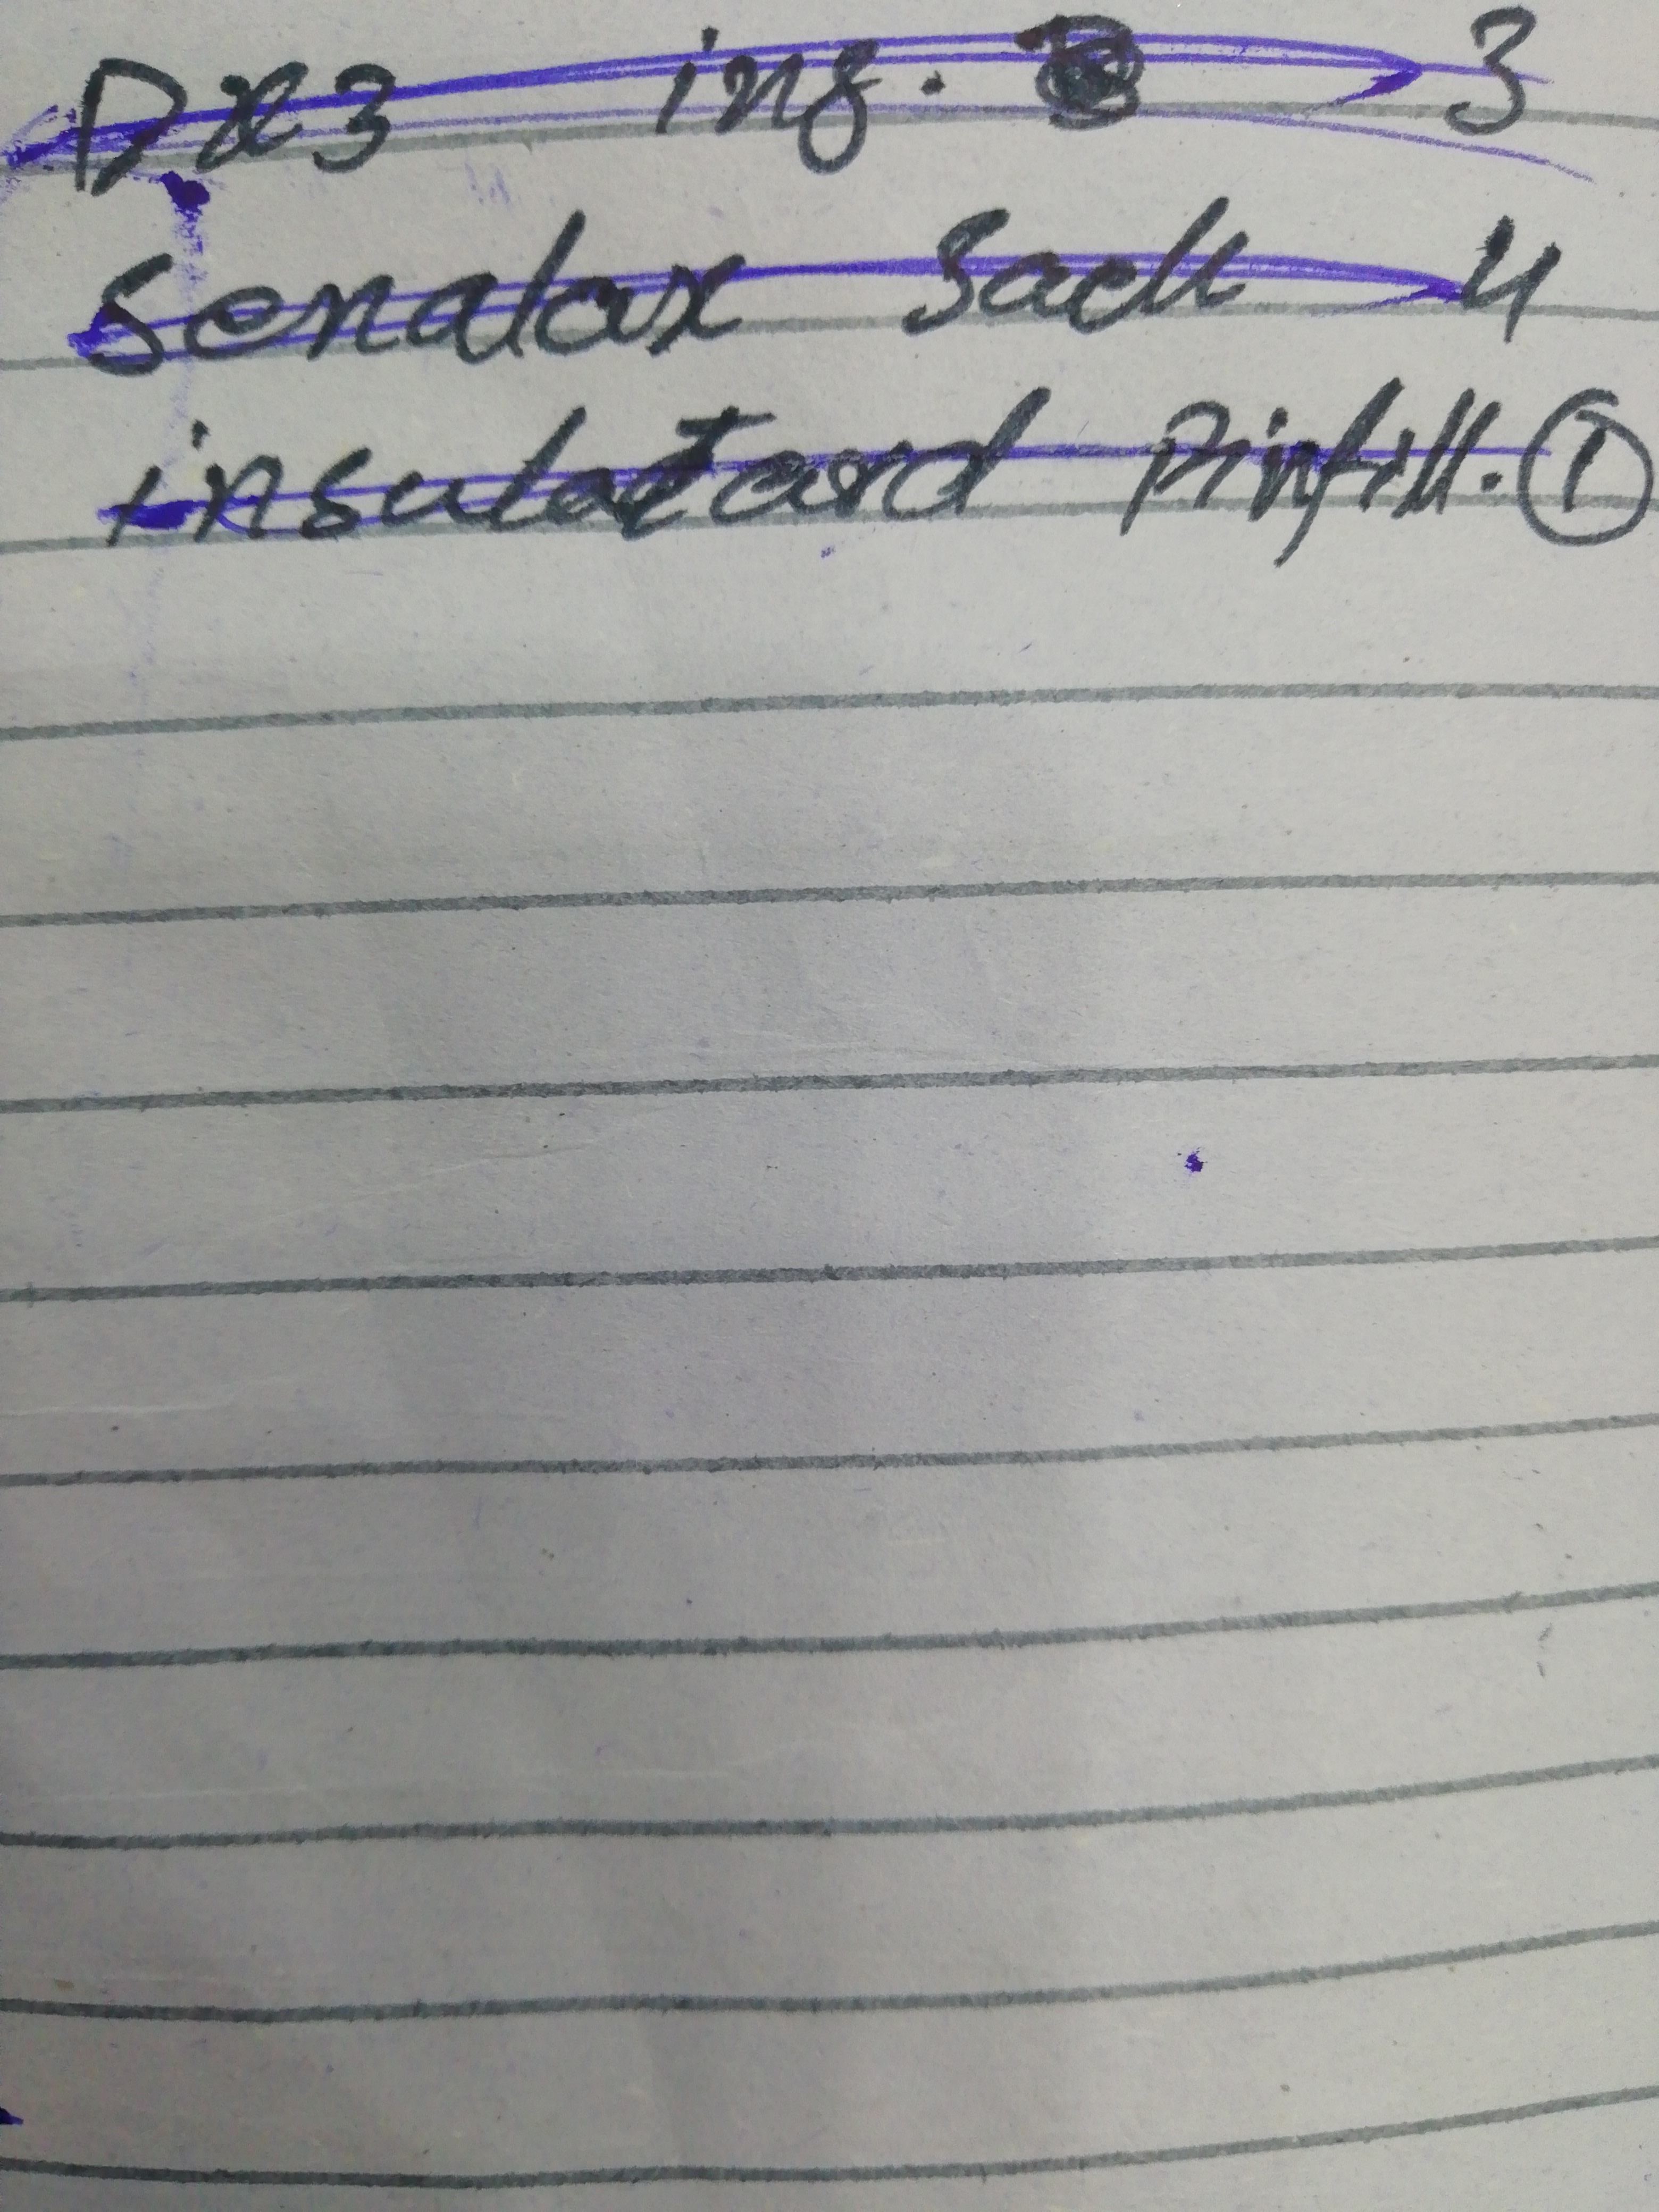 Dx3 ing. 3
senalax Sach 4
insulatard Pinfill. 1